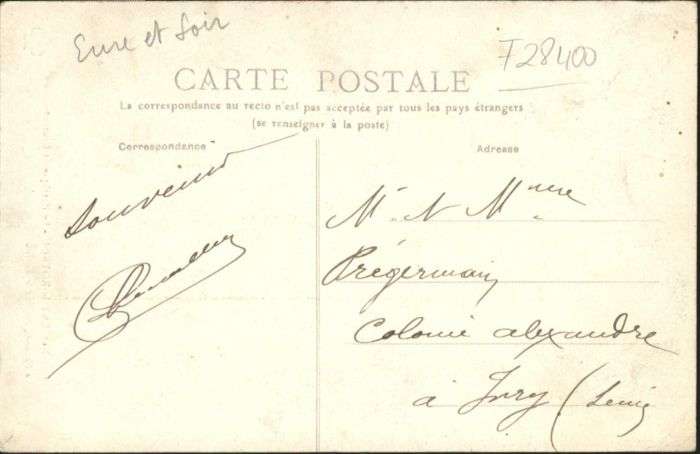 Eure et Loir
F28400
CARTE POSTALE
La correspondance au recto n'est pas acceptée par tous les pays étrangers
(se renseigner à la poste)
Correspondance
Adresse
Souvenir
Mr & Mme
Prégermain
Colonie alexandre
à Ivry (Seine